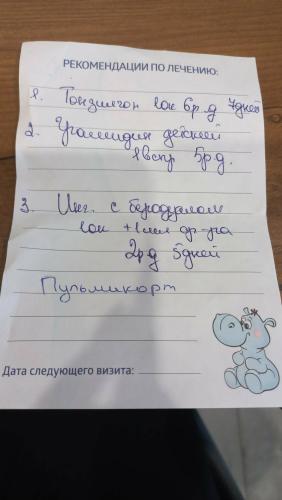 РЕКОМЕНДАЦИИ ПО ЛЕЧЕНИЮ:
1. Тонзилгон 10к 6р.д 7дней
2. Грамидин детский
1вспр 5р д.
3. Инг. с беродуалом
10к +1мл др-ра
2р д 5дней
Пульмикорт
Дата следующего визита: